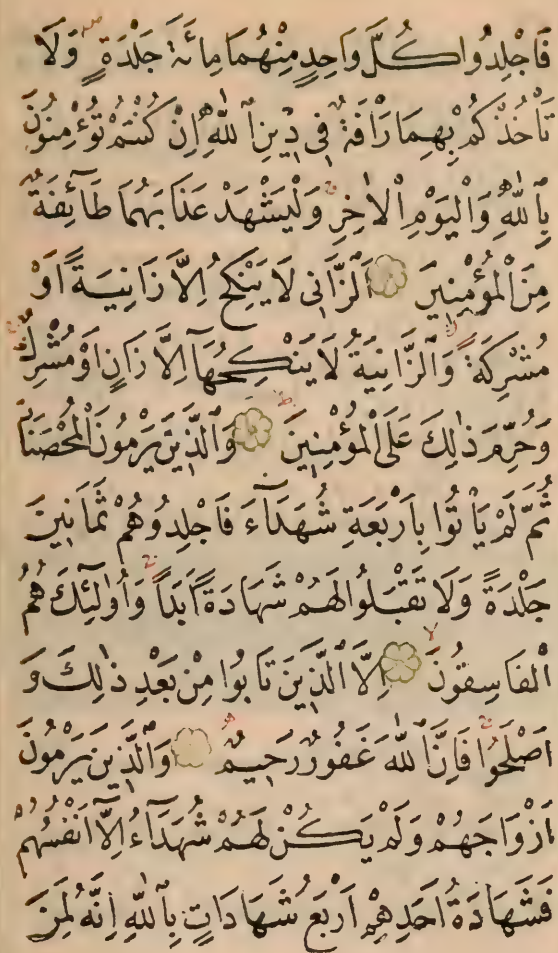 فَاجْلِدُوا كُلَّ وَاحِدٍ مِنْهُمَا مِائَةَ جَلْدَةٍ وَلَا
تَأْخُذْكُمْ بِهِمَا رَأْفَةٌ فِي دِينِ اللّٰهِ اِنْ كُنْتُمْ تُؤْمِنُونَ
بِاللّٰهِ وَالْيَوْمِ الْاٰخِرِ وَلْيَشْهَدْ عَذَابَهُمَا طَائِفَةٌ
مِنَ الْمُؤْمِنِينَ اَلزَّانِى لَا يَنْكِحُ اِلَّا زَانِيَةً اَوْ
مُشْرِكَةً وَالزَّانِيَةُ لَا يَنْكِحُهَا اِلَّا زَانٍ اَوْ مُشْرِكٌ
وَحُرِّمَ ذٰلِكَ عَلَى الْمُؤْمِنِينَ وَالَّذِينَ يَرْمُونَ الْمُحْصَنَاتِ
ثُمَّ لَمْ يَأْتُوا بِاَرْبَعَةِ شُهَدَآءَ فَاجْلِدُوهُمْ ثَمَانِينَ
جَلْدَةً وَلَا تَقْبَلُوا لَهُمْ شَهَادَةً اَبَدًا وَاُولٰئِكَ هُمُ
الْفَاسِقُونَ اِلَّا الَّذِينَ تَابُوا مِنْ بَعْدِ ذٰلِكَ وَ
اَصْلَحُوا فَاِنَّ اللّٰهَ غَفُورٌ رَحِيمٌ وَالَّذِينَ يَرْمُونَ
اَزْوَاجَهُمْ وَلَمْ يَكُنْ لَهُمْ شُهَدَآءُ اِلَّا اَنْفُسُهُمْ
فَشَهَادَةُ اَحَدِهِمْ اَرْبَعُ شَهَادَاتٍ بِاللّٰهِ اِنَّهُ لَمِنَ